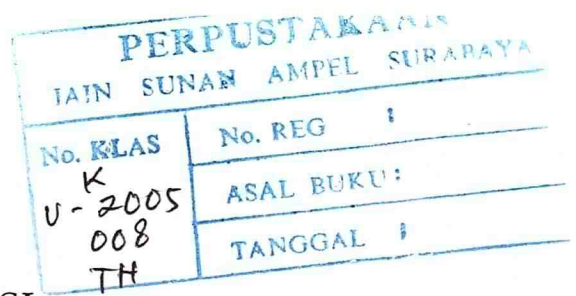 PERPUSTAKAAN
IAIN SUNAN AMPEL SURABAYA
No. KLAS
K
U-2005
008
TH
No. REG :
ASAL BUKU:
TANGGAL :